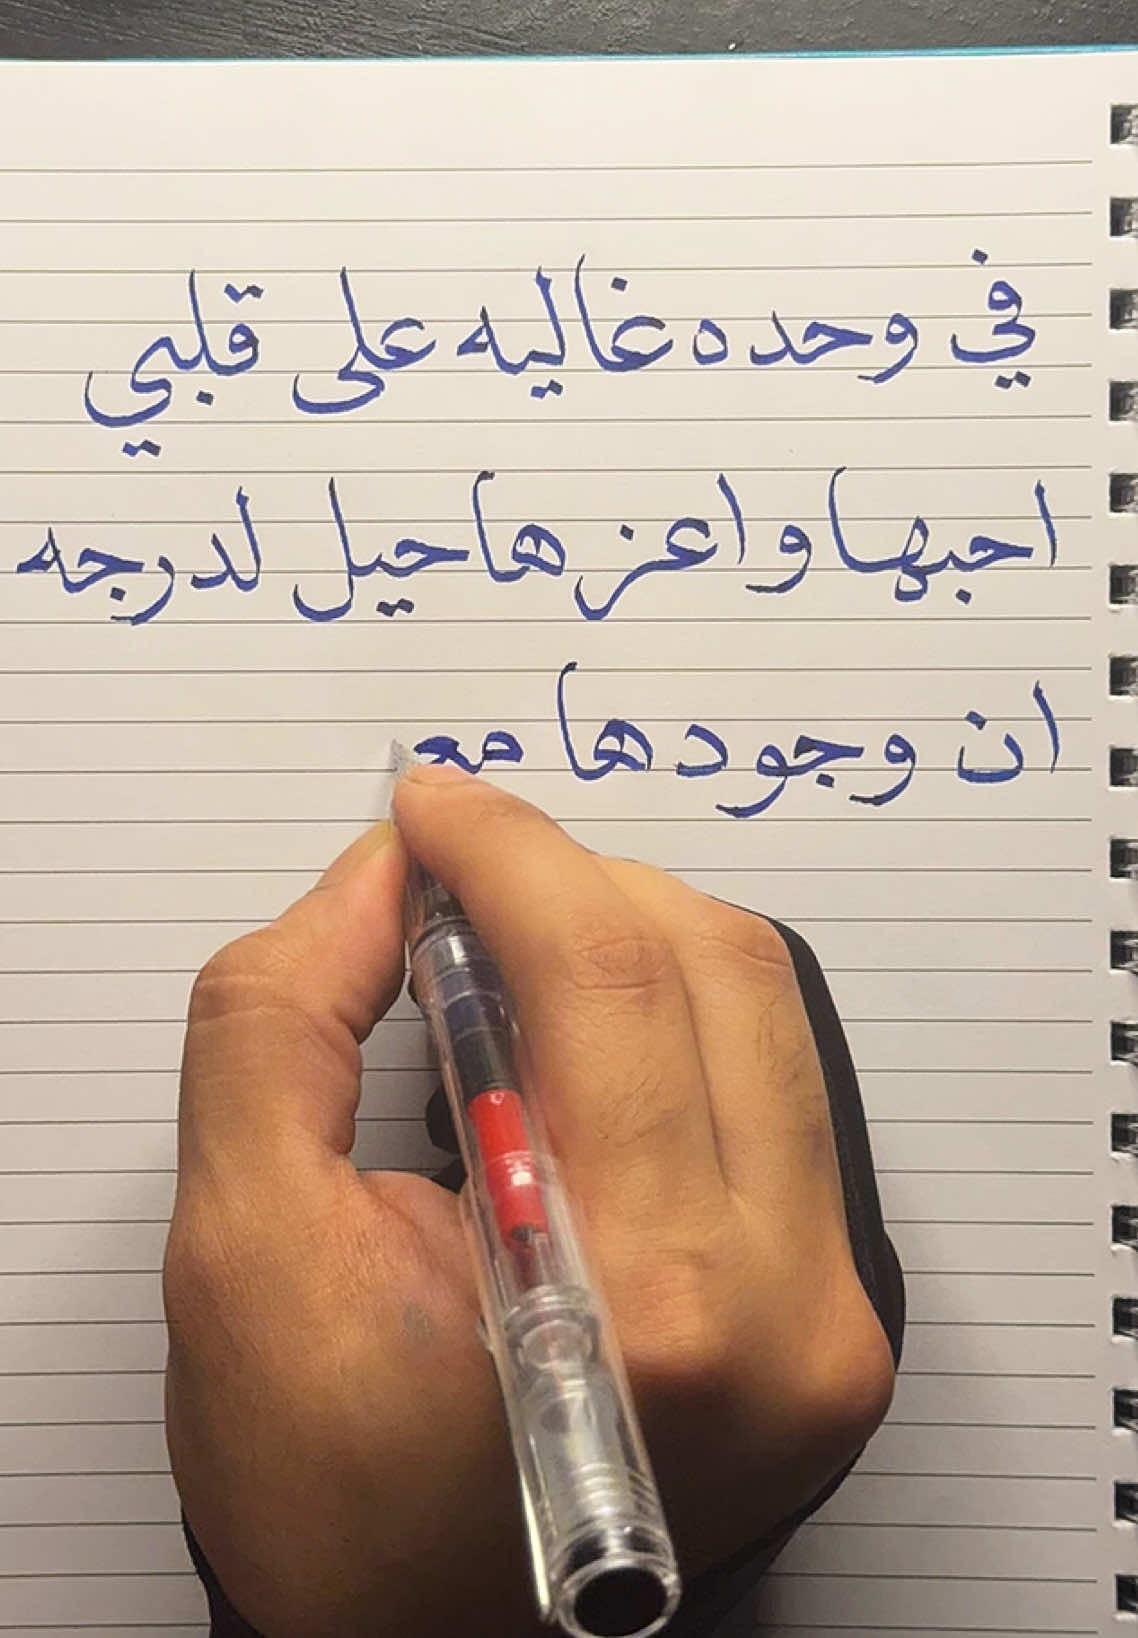 في وحده غاليه على قلبي
احبها واعزها حيل لدرجه
ان وجودها مع